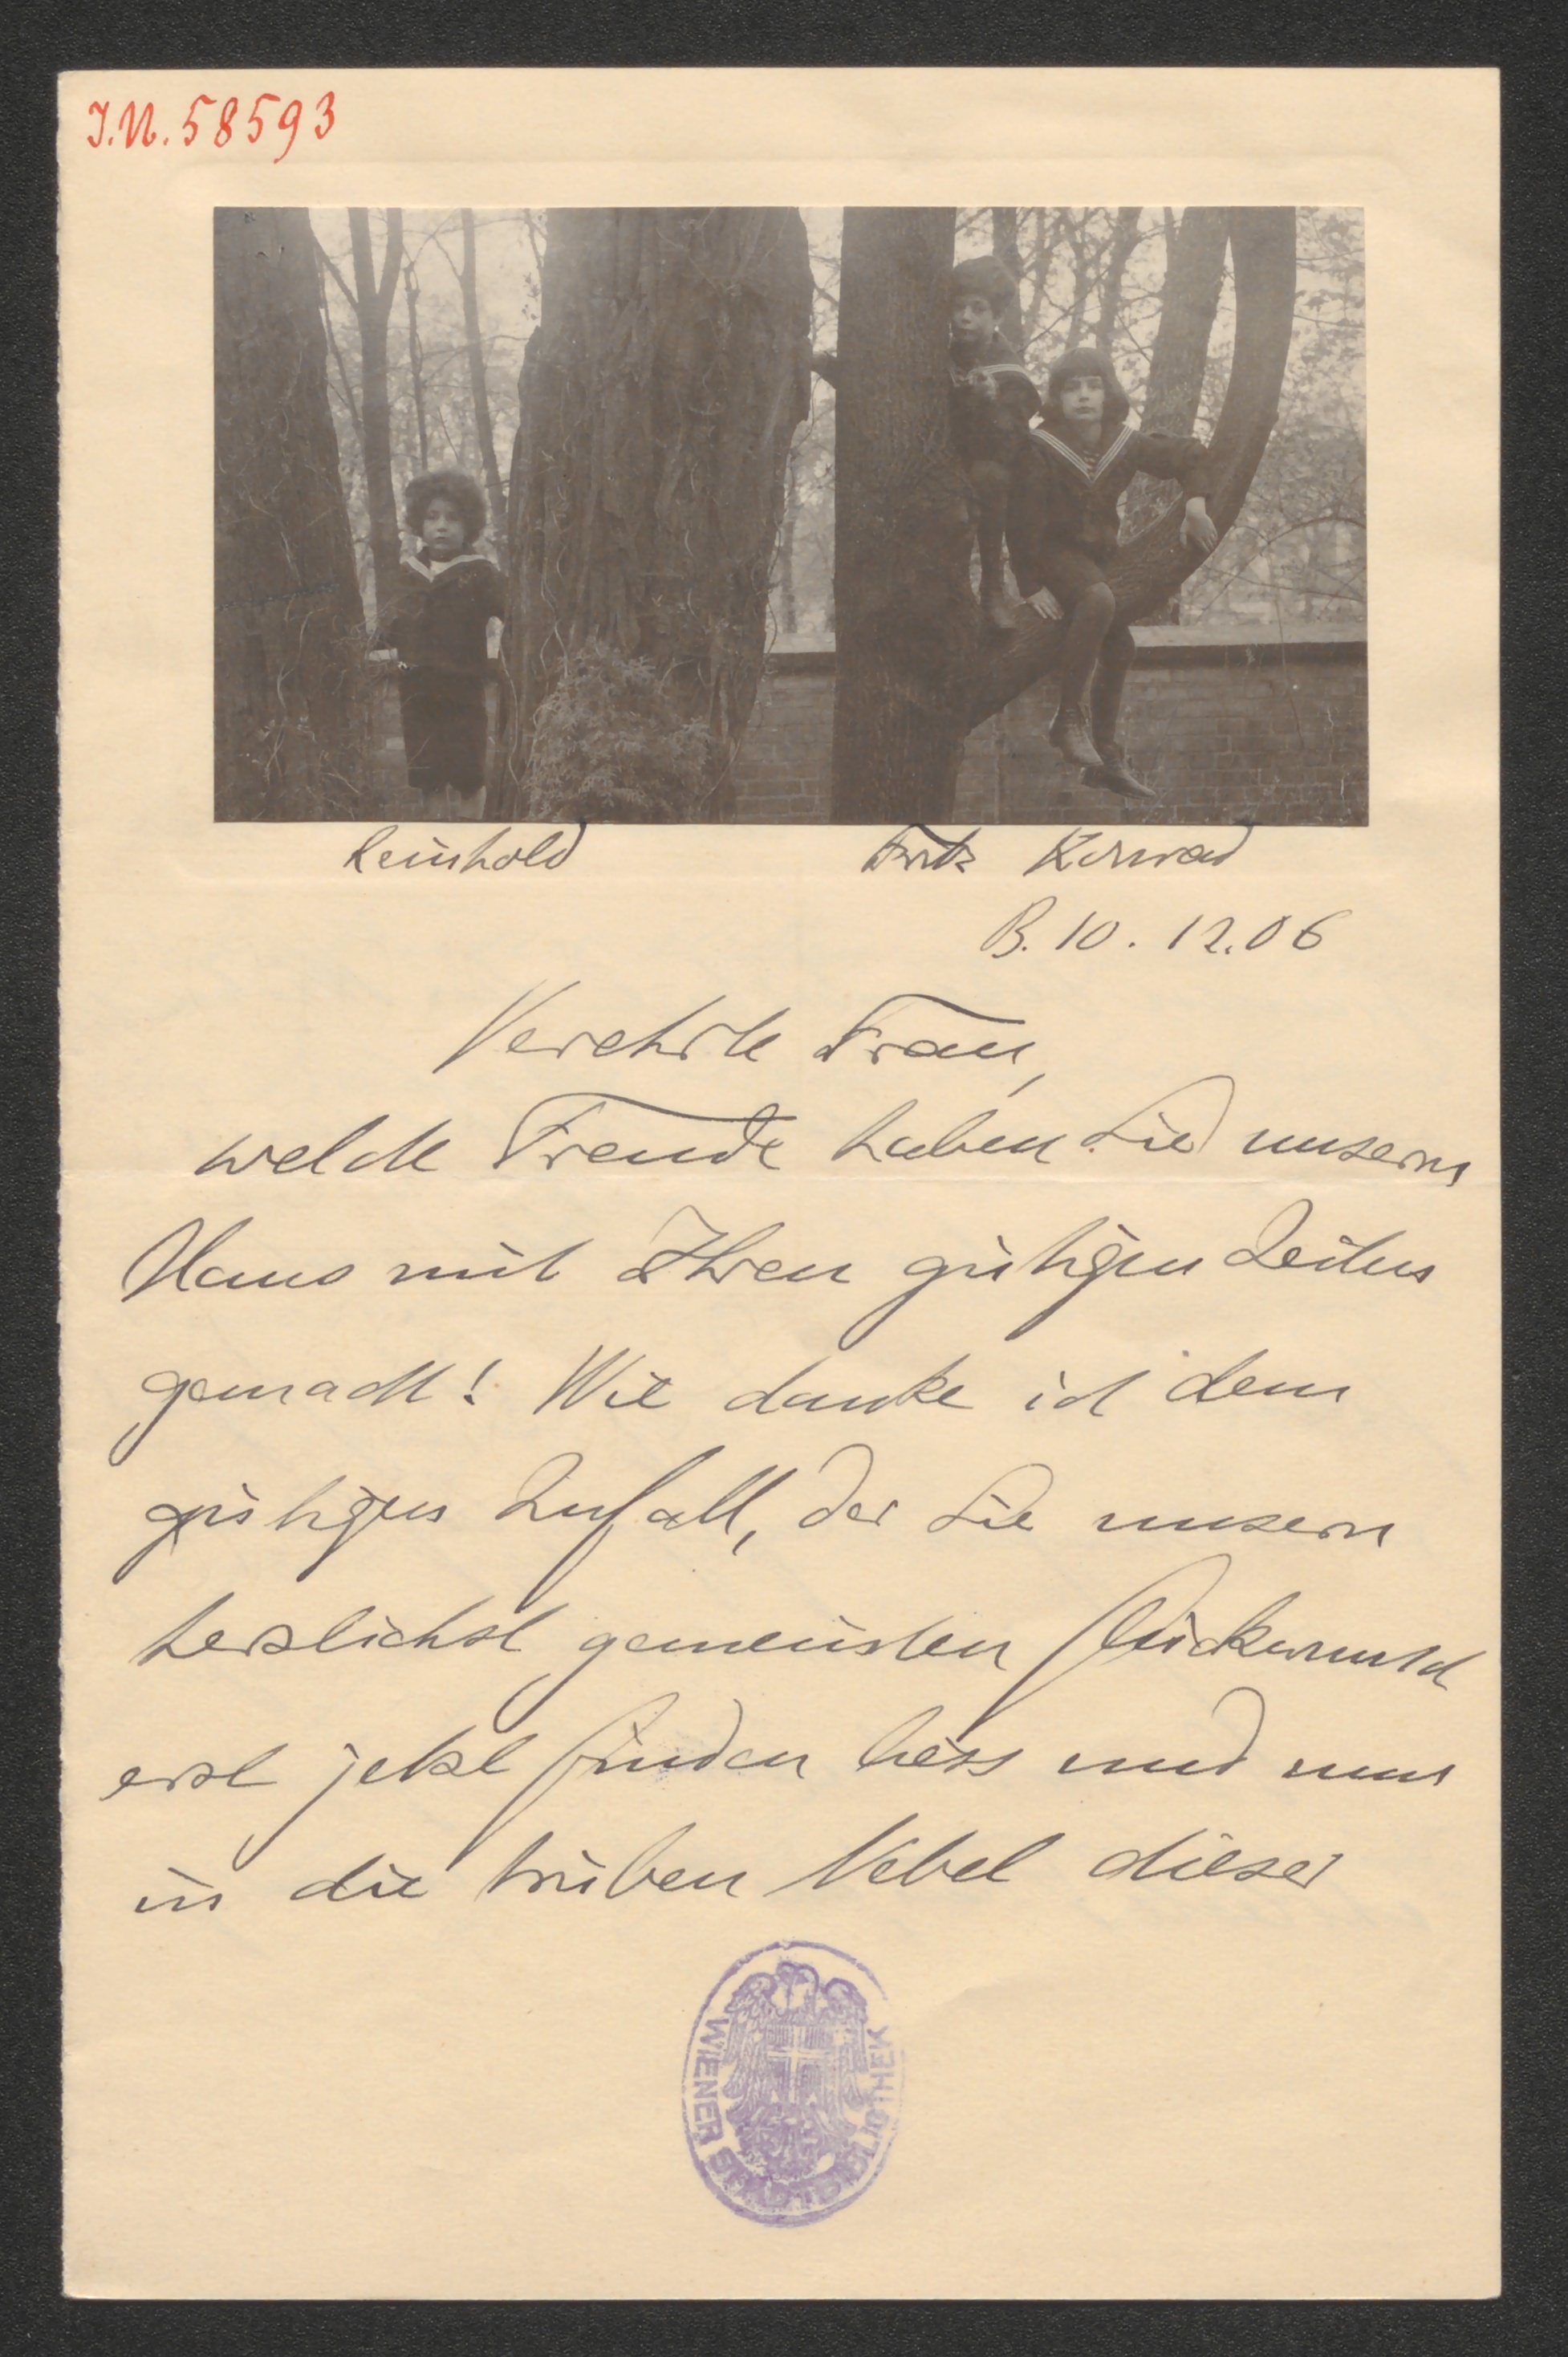 I.N. 58593
Reinhold Fritz Konrad
B. 10. 12. 06
Verehrte Frau,
welche Freude haben Sie unserm
Haus mit Ihren gütigen Zeilen
gemacht! Wie danke ich dem
gütigen Zufall, der Sie unsern
herzlichst gemeinten Glückwunsch
erst jetzt finden liess und nun
in die trüben Nebel dieser
WIENER STADTBIBLIOTHEK